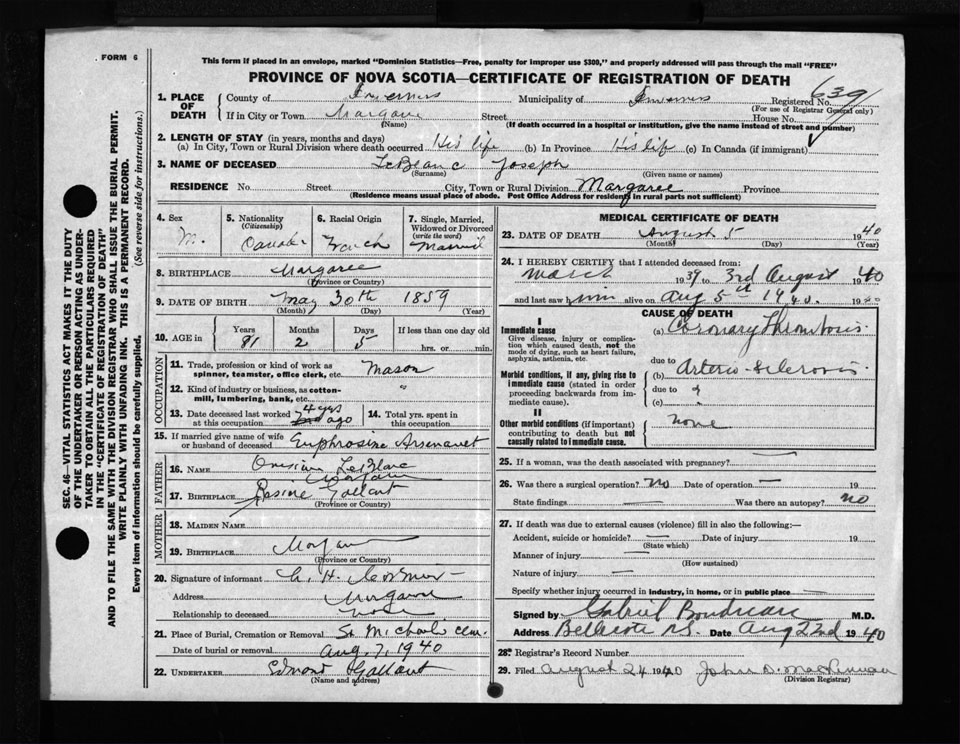 FORM 6
This form if placed in an envelope, marked "Dominion Statistics—Free, penalty for improper use $300," and properly addressed will pass through the mail "FREE"
PROVINCE OF NOVA SCOTIA—CERTIFICATE OF REGISTRATION OF DEATH
SEC. 46—VITAL STATISTICS ACT MAKES IT THE DUTY
OF THE UNDERTAKER OR PERSON ACTING AS UNDER-
TAKER TO OBTAIN ALL THE PARTICULARS REQUIRED
IN THE "CERTIFICATE OF REGISTRATION OF DEATH"
AND TO FILE THE SAME WITH THE DIVISION REGISTRAR WHO SHALL ISSUE THE BURIAL PERMIT.
WRITE PLAINLY WITH UNFADING INK. THIS IS A PERMANENT RECORD.
Every item of information should be carefully supplied. (See reverse side for instructions.)
1. PLACE OF DEATH
County of Inverness Municipality of Inverness Registered No. 639
(For use of Registrar General only)
If in City or Town Margaree Street House No.
(Name) (If death occurred in a hospital or institution, give the name instead of street and number)
2. LENGTH OF STAY (in years, months and days)
(a) In City, Town or Rural Division where death occurred His life (b) In Province His life (c) In Canada (if immigrant)
3. NAME OF DECEASED LeBlanc Joseph
(Surname) (Given name or names)
RESIDENCE No. Street City, Town or Rural Division Margaree Province
(Residence means usual place of abode. Post Office Address for residents in rural parts not sufficient)
4. Sex M.
5. Nationality (Citizenship) Canada
6. Racial Origin French
7. Single, Married, Widowed or Divorced (write the word) Married
8. BIRTHPLACE Margaree
(Province or Country)
9. DATE OF BIRTH May 30th 1859
(Month) (Day) (Year)
10. AGE IN Years 81 Months 2 Days 5 If less than one day old hrs. or min.
OCCUPATION
11. Trade, profession or kind of work as spinner, teamster, office clerk, etc. Mason
12. Kind of industry or business, as cotton-mill, lumbering, bank, etc. "
13. Date deceased last worked at this occupation 4 yrs ago
14. Total yrs. spent in this occupation
15. If married give name of wife or husband of deceased Euphrosine Arsenault
FATHER
16. NAME LeBlanc
17. BIRTHPLACE Gallant
(Province or Country)
MOTHER
18. MAIDEN NAME
19. BIRTHPLACE Margaree
(Province or Country)
20. Signature of informant H.
Address Margaree
Relationship to deceased none
21. Place of Burial, Cremation or Removal St. Michaels Cem.
Date of burial or removal Aug. 7, 1940
22. UNDERTAKER Edmond Gallant
(Name and address)
MEDICAL CERTIFICATE OF DEATH
23. DATE OF DEATH August 5 1940
(Month) (Day) (Year)
24. I HEREBY CERTIFY that I attended deceased from:
March 1939 to 3rd August 1940
and last saw him alive on Aug 5th 1940. 1940
CAUSE OF DEATH
I
Immediate cause (a) Coronary Thrombosis.
Give disease, injury or complication which caused death, not the mode of dying, such as heart failure, asphyxia, asthenia, etc.
due to
Morbid conditions, if any, giving rise to immediate cause (stated in order proceeding backwards from immediate cause).
(b) Arterio-sclerosis.
due to ?
(c)
II
Other morbid conditions (if important) contributing to death but not causally related to immediate cause. none
25. If a woman, was the death associated with pregnancy? —
26. Was there a surgical operation? no Date of operation — 19
State findings — Was there an autopsy? no
27. If death was due to external causes (violence) fill in also the following:—
Accident, suicide or homicide? — Date of injury 19
(State which)
Manner of injury —
(How sustained)
Nature of injury —
Specify whether injury occurred in industry, in home, or in public place —
Signed by Gabriel Boudreau M.D.
Address Bellecote N.S. Date Aug 22nd 1940
28. Registrar's Record Number
29. Filed August 24 1940 John D. MacKinnon
(Division Registrar)